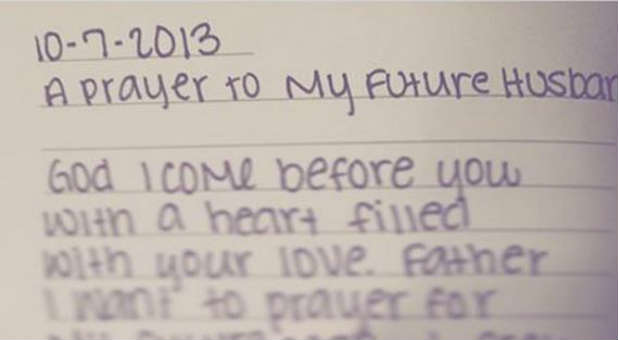 10-7-2013
A prayer to My Future Husban
God I come before you
with a heart filled
with your love. Father
I want to prayer for